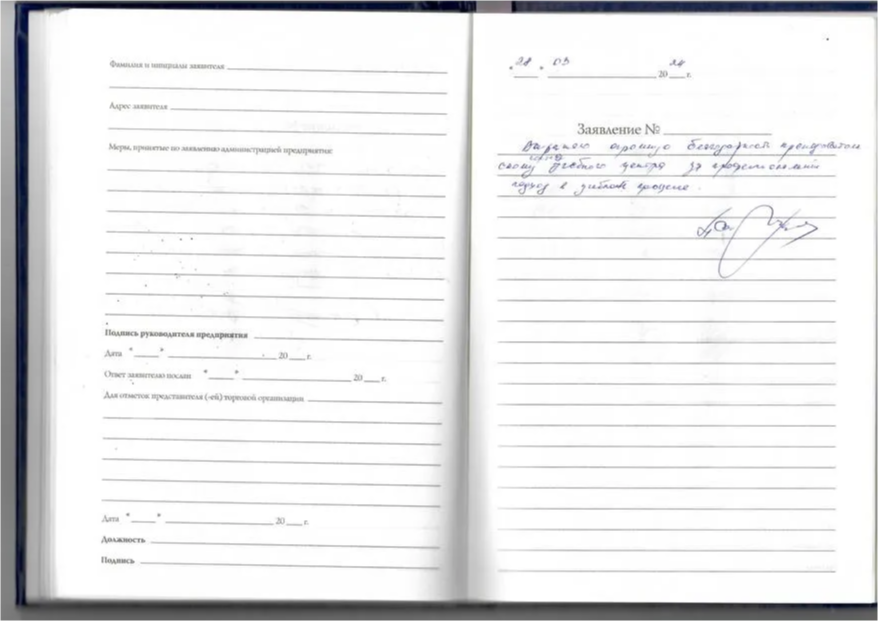 Фамилия и инициалы заявителя
Адрес заявителя
Меры, принятые по заявлению администрацией предприятия:
Подпись руководителя предприятия
Дата " " 20 г.
Ответ заявителю послан " " 20 г.
Для отметок представителя (-ей) торговой организации
Дата " " 20 г.
Должность
Подпись
"28" 03 2024 г.
Заявление №
Выражаю огромную благодарность преподаватель
скому учебного центра за профессиональный
подход в учебном процессе.